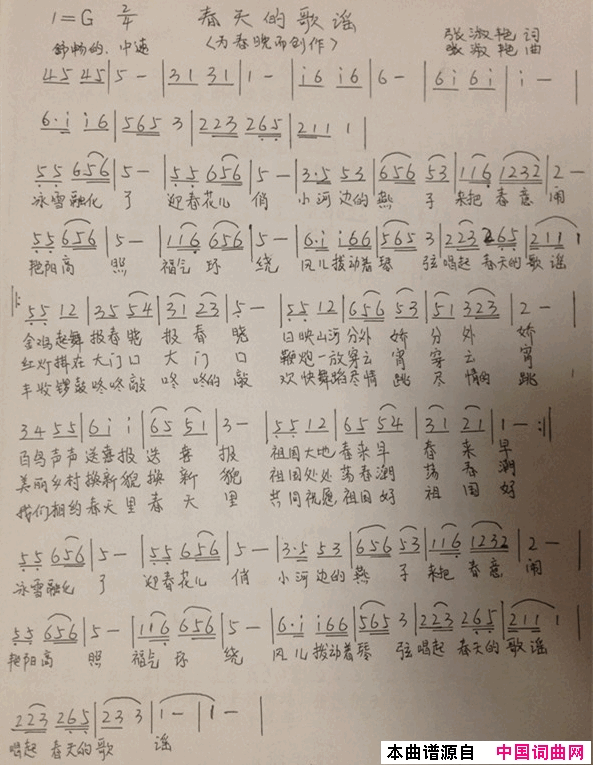 1=G 2/4 春天的歌谣
舒畅的、中速 (为春晚而创作) 张淑艳 词
张淑艳 曲
45 45 | 5 - | 31 31 | 1 - | i6 i6 | 6 - | 6i 6i | i - |
6·i i6 | 565 3 | 223 265 | 211 1 |
55 656 | 5 - | 55 656 | 5 - | 3·5 53 | 656 53 | 116 1232 | 2 -
冰雪融化 了 迎春花儿 俏 小河边的燕 子 来把春意 闹
55 656 | 5 - | 116 656 | 5 - | 6·i i66 | 565 3 | 223 265 | 211 1
艳阳高 照 福气环 绕 风儿拨动着琴 弦唱起 春天的歌 谣
‖: 55 12 | 35 54 | 31 23 | 5 - | 55 12 | 656 53 | 51 323 | 2 - |
金鸡起舞报春晓 报春 晓 日映山河分外 娇 分外 娇
红灯挂在大门口 大门 口 鞭炮一放穿云 霄 穿云 霄
丰收锣鼓咚咚敲 咚咚的 敲 欢快舞蹈尽情 跳 尽情的 跳
34 55 | 6i i | 65 51 | 3 - | 55 12 | 65 54 | 31 21 | 1 - :‖
百鸟声声送喜报送 喜 报 祖国大地春来早 春来 早
美丽乡村换新貌换 新 貌 祖国处处荡春潮 荡春 潮
我们相约春天里春 天 里 共同祝愿祖国好 祖国 好
55 656 | 5 - | 55 656 | 5 - | 3·5 53 | 656 53 | 116 1232 | 2 - |
冰雪融化 了 迎春花儿 俏 小河边的燕 子 来把春意 闹
55 656 | 5 - | 116 656 | 5 - | 6·i i66 | 565 3 | 223 265 | 211 1 |
艳阳高 照 福气环 绕 风儿拨动着琴 弦唱起 春天的歌 谣
223 265 | 223 3 | 1 - | 1 - |
唱起 春天的歌 谣
本曲谱源自 中国词曲网